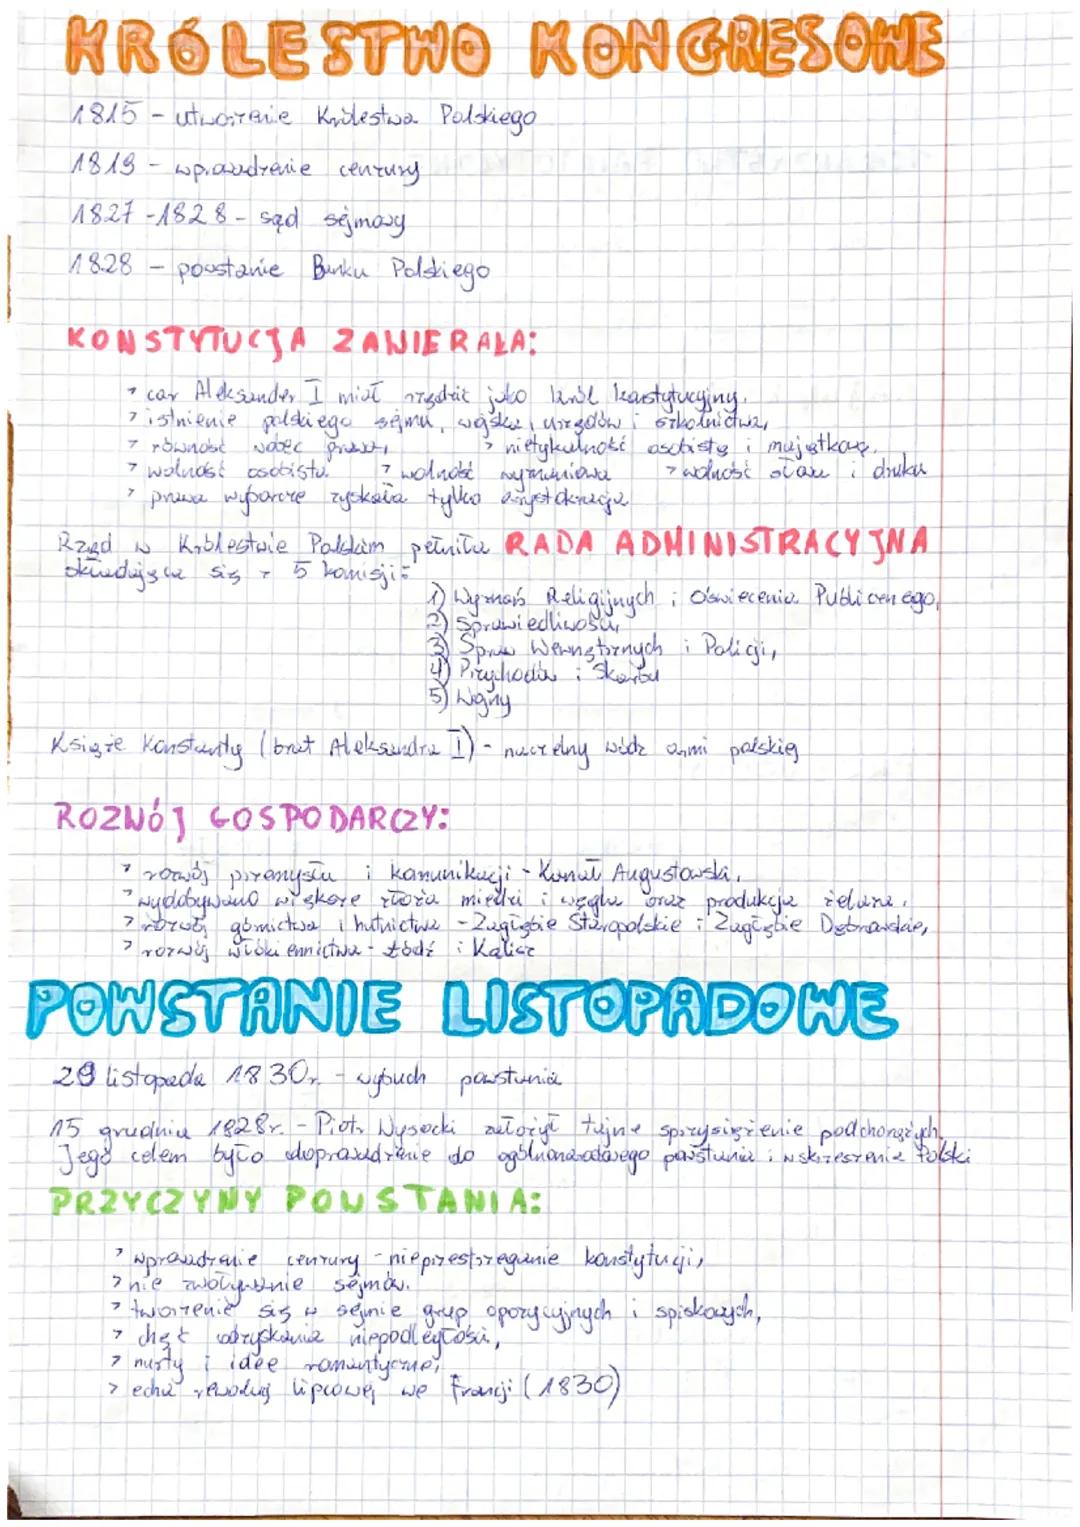 KRÓLESTWO KONGRESOWE
1815 - utworzenie Królestwa Polskiego
1819 - wprowadzenie cenzury
1827-1828 - sąd sejmowy
1828 - powstanie Banku Polskiego
KONSTYTUCJA ZAWIERAŁA:
> car Aleksander I miał rządzić jako król konstytucyjny.
> istnienie polskiego sejmu, wojska, urzędów i szkolnictwa,
> równość wobec prawa, > nietykalność osobistą i majątkową.
> wolność osobista. > wolność wyznaniowa > wolność słowa i druku
> prawa wyborcze zyskała tylko arystokracja
Rząd w Królestwie Polskim pełniła RADA ADMINISTRACYJNA
składająca się z 5 komisji:
1) Wyznań Religijnych i Oświecenia Publicznego,
2) Sprawiedliwości,
3) Spraw Wewnętrznych i Policji,
4) Przychodów i Skarbu
5) Wojny
Książe Konstanty (brat Aleksandra I) - naczelny wódz armi polskiej
ROZWÓJ GOSPODARCZY:
> rozwój przemysłu i komunikacji - Kanał Augustowski,
> wydobywano większe złoża miedzi i węgla oraz produkcja żelaza,
> rozwój górnictwa i hutnictwa - Zagłębie Staropolskie i Zagłębie Dąbrowskie,
> rozwój włókiennictwa - Łódź i Kalisz
POWSTANIE LISTOPADOWE
29 listopada 1830r. - wybuch powstania
15 grudnia 1828r. - Piotr Wysocki założył tajne sprzysiężenie podchorążych.
Jego celem było doprowadzenie do ogólnonarodowego powstania i wskrzeszenia Polski
PRZYCZYNY POWSTANIA:
> wprowadzenie cenzury - nieprzestrzeganie konstytucji,
> nie zwoływanie sejmów.
> tworzenie się w sejmie grup opozycyjnych i spiskowych,
> chęć odzyskania niepodległości,
> nurty i idee romantyczne,
> echa rewolucji lipcowej we Francji (1830)